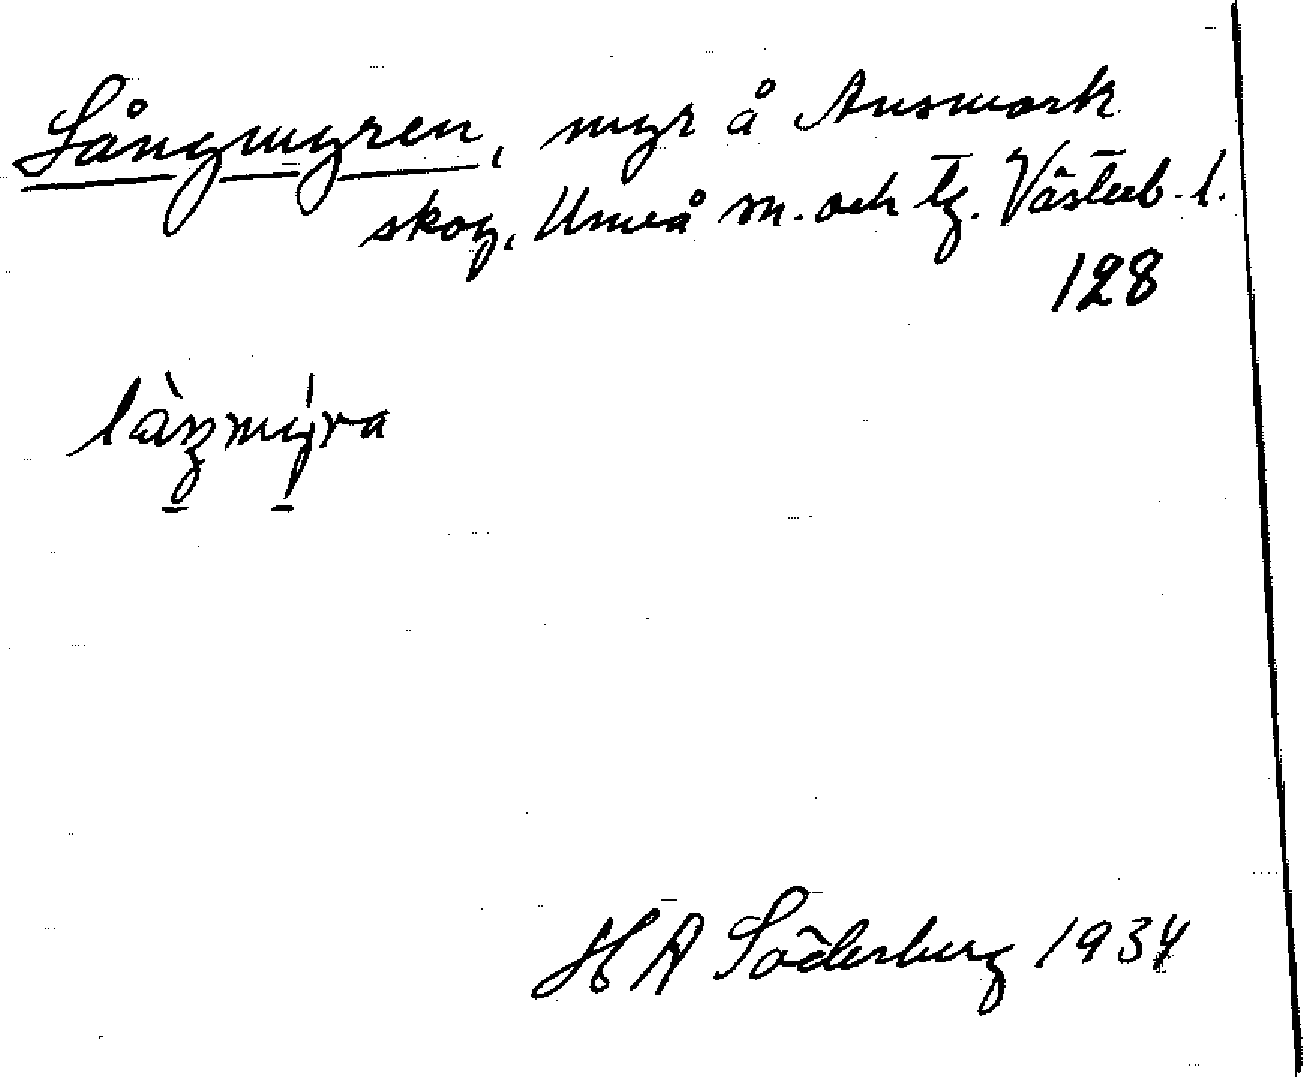 Långmyren, myr å Ansmark
skog, Umeå m. och tg. Västerb. l.
128
làŋmy̍ra
H A Söderberg 1934